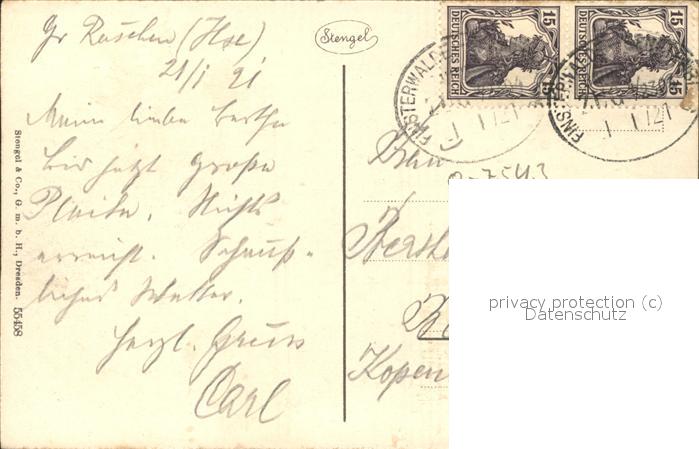 Gr Raschen (Hse)
21/I 21
Meine liebe Bertha
bis jetzt große
Pleite. Nichts
erreicht. Scheuß-
liches Wetter.
Herzl. Gruss
Carl
Stengel
Stengel & Co., G. m. b. H., Dresden. 55458
15 DEUTSCHES REICH 15
15 DEUTSCHES REICH 15
FINSTERWALD
ZUG
FINSTERWALD
ZUG
Kopen
privacy protection (c)
Datenschutz